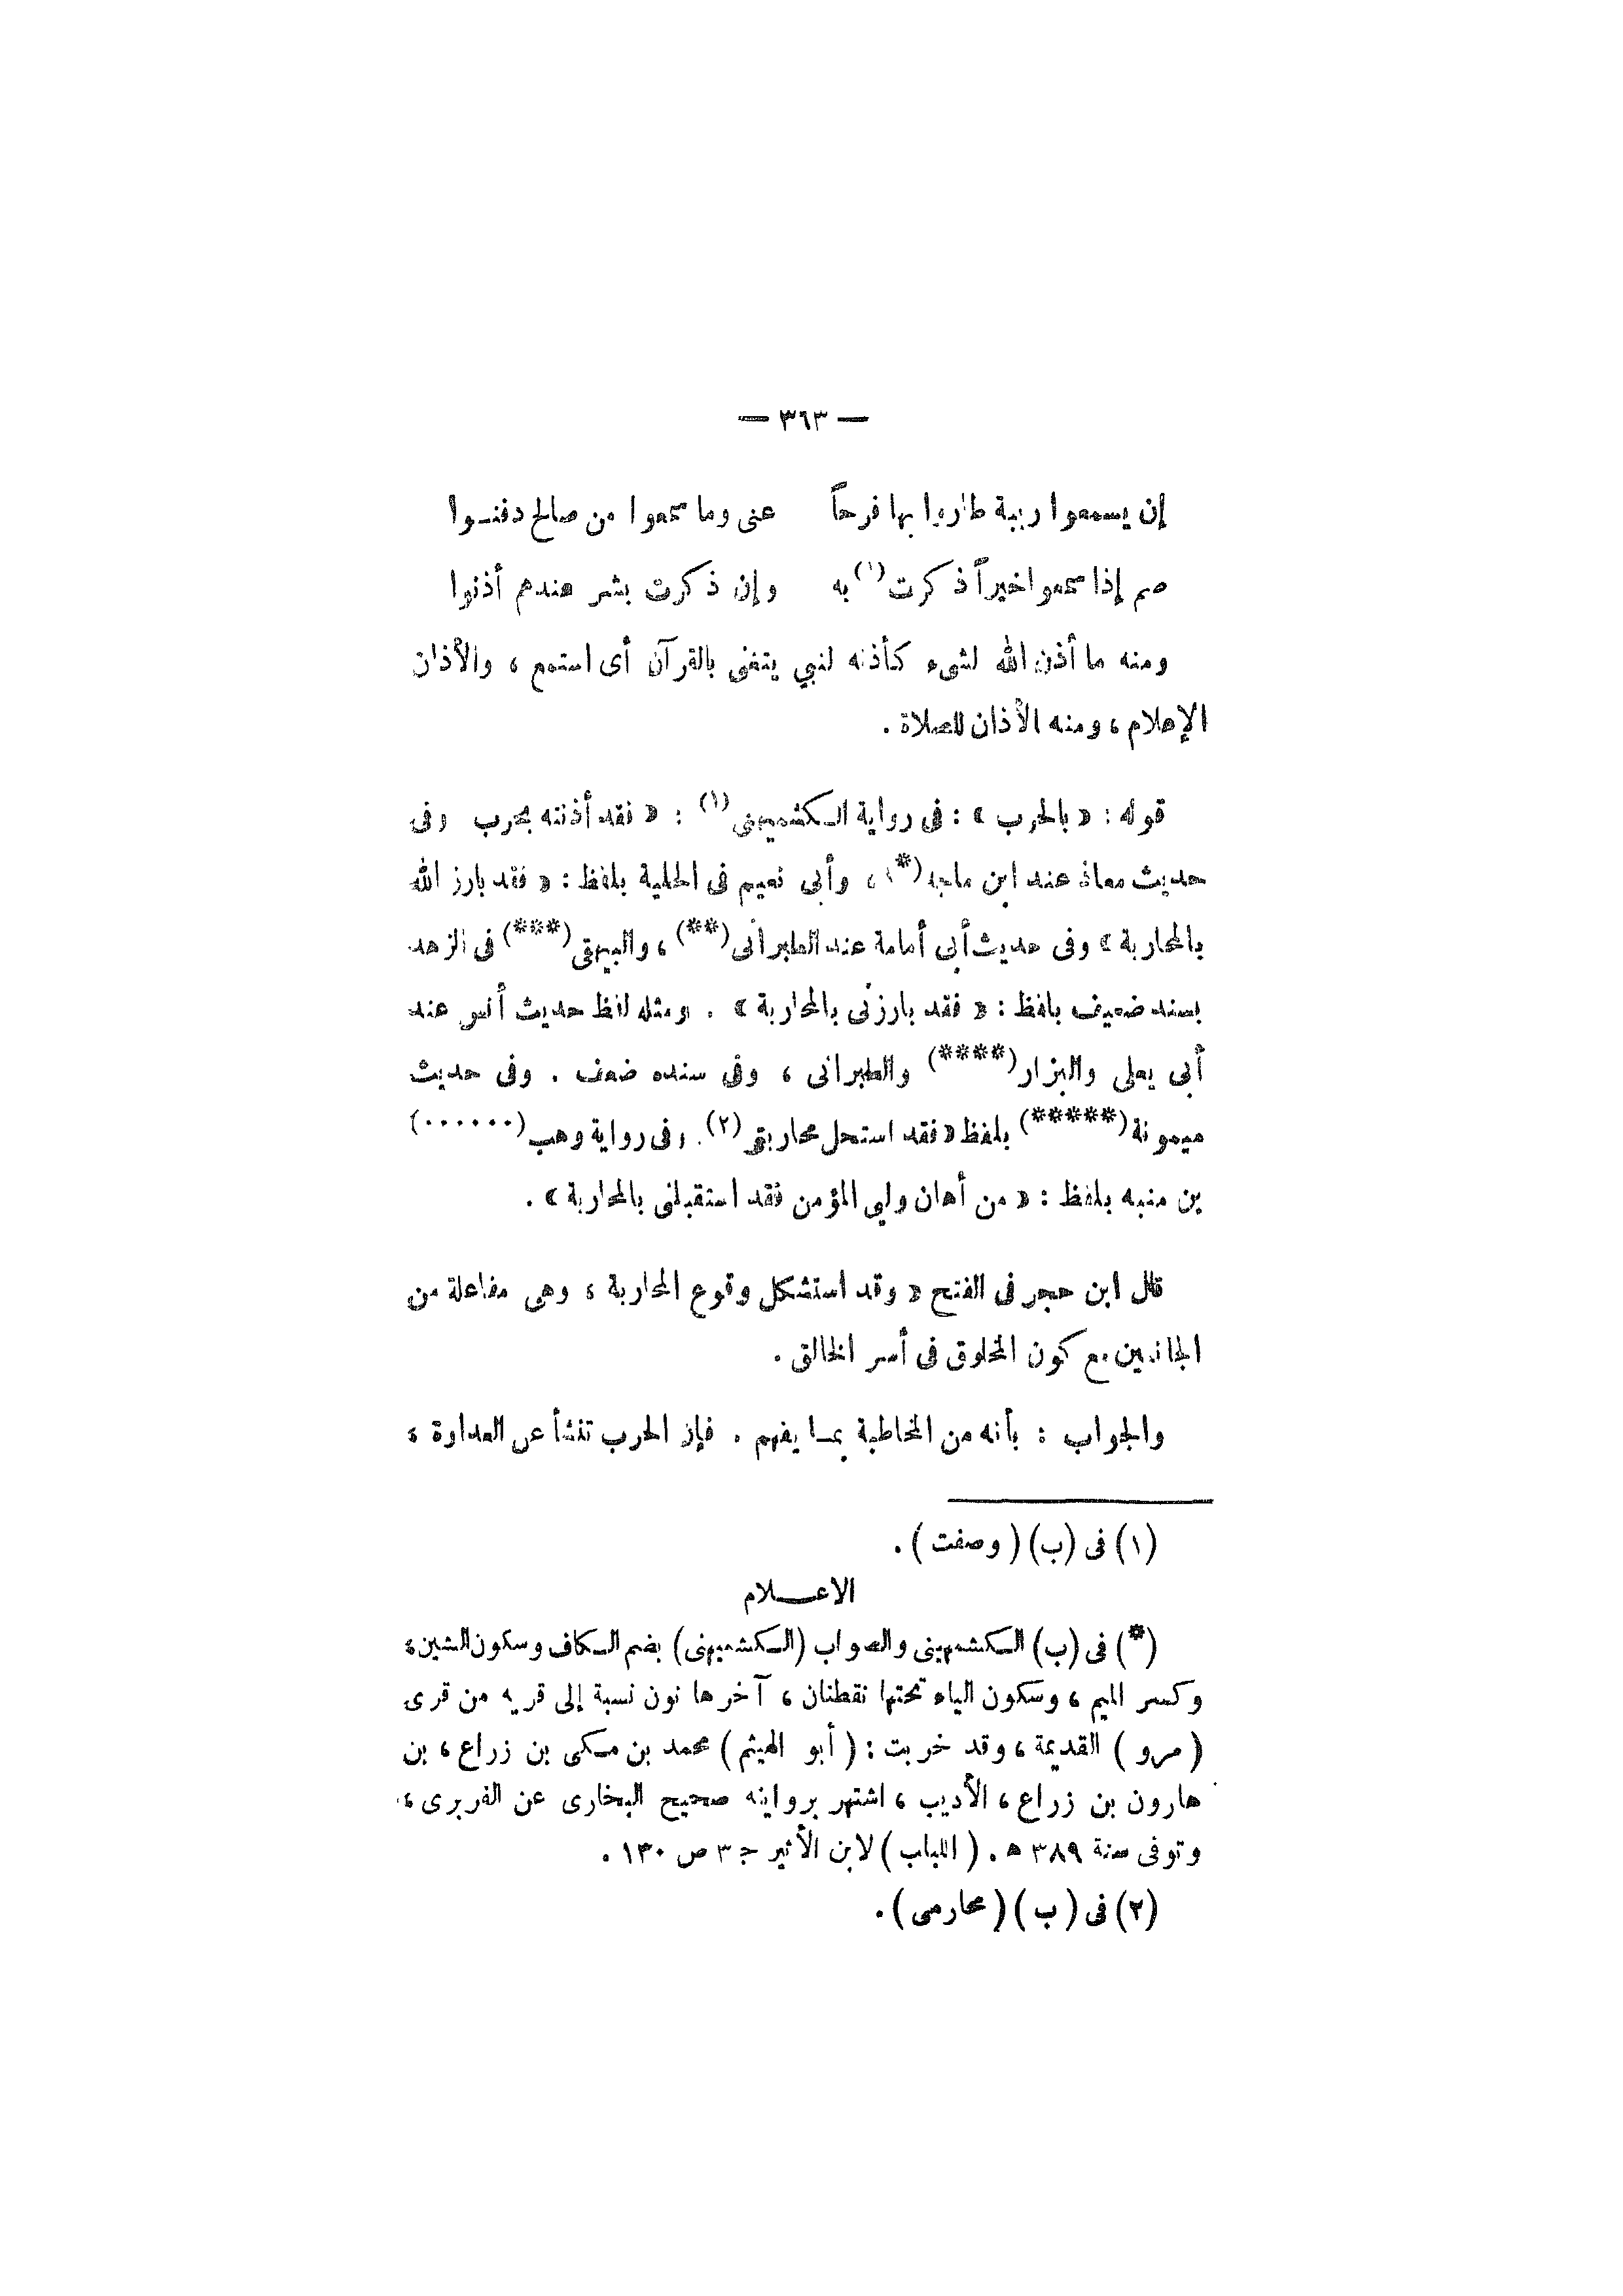 — ٣٦٣ —
إن يسمعوا ريبة طاروا بها فرحاً عنى وما سمعوا من صالح دفنـوا
صم إذا سمعوا خيراً ذكرت (١) به وإن ذكرت بشر عندهم أذنوا
ومنه ما أذن الله لشىء كأذنه لنبي يتغنى بالقرآن أى استمع ، والأذان
الإعلام ، ومنه الأذان للصلاة .
قوله : « بالحرب » : فى رواية الـكشميهنى (١) : « فقد أذنته بحرب وفى
حديث معاذ عند ابن ماجه (*) ، وأبى نعيم فى الحلية بلفظ : « فقد بارز الله
بالمحاربة » وفى حديث أبى أمامة عند الطبرانى (**) ، والبيهقى (***) فى الزهد
بسند ضعيف بلفظ : « فقد بارزنى بالمحاربة » . ومثله لفظ حديث أنس عند
أبى يعلى والبزار (****) والطبرانى ، وفى سنده ضعف . وفى حديث
ميمونة (*****) بلفظ « فقد استحل محاربتى (٢) . وفى رواية وهب (······)
بن منبه بلفظ : « من أهان ولي المؤمن فقد استقبلنى بالمحاربة » .
قال ابن حجر فى الفتح « وقد استشكل وقوع المحاربة ، وهى مفاعلة من
الجانبين مع كون المخلوق فى أسر الخالق .
والجواب : بأنه من المخاطبة بمـا يفهم . فإن الحرب تنشأ عن العداوة ،
(١) فى (ب) (وصفت) .
الاعـــلام
(*) فى (ب) الـكشمهينى والصواب (الـكشميهنى) بضم الـكاف وسكون الشين ،
وكسر الميم ، وسكون الياء تحتها نقطتان ، آخرها نون نسبة إلى قريه من قرى
(مرو) القديمة ، وقد خربت : (أبو الهيثم) محمد بن مـكى بن زراع ، بن
هارون بن زراع ، الأديب ، اشتهر بروايته صحيح البخارى عن الفربرى ،
وتوفى سنة ٣٨٩ ه . (اللباب) لابن الأثير ج ٣ ص ١٣٠ .
(٢) فى (ب) (محارمى) .